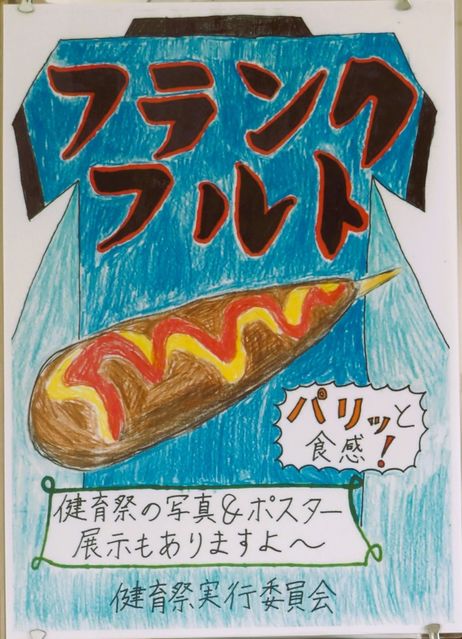 フランク
フルト
パリッと
食感!
健育祭の写真&ポスター
展示もありますよ〜
健育祭実行委員会